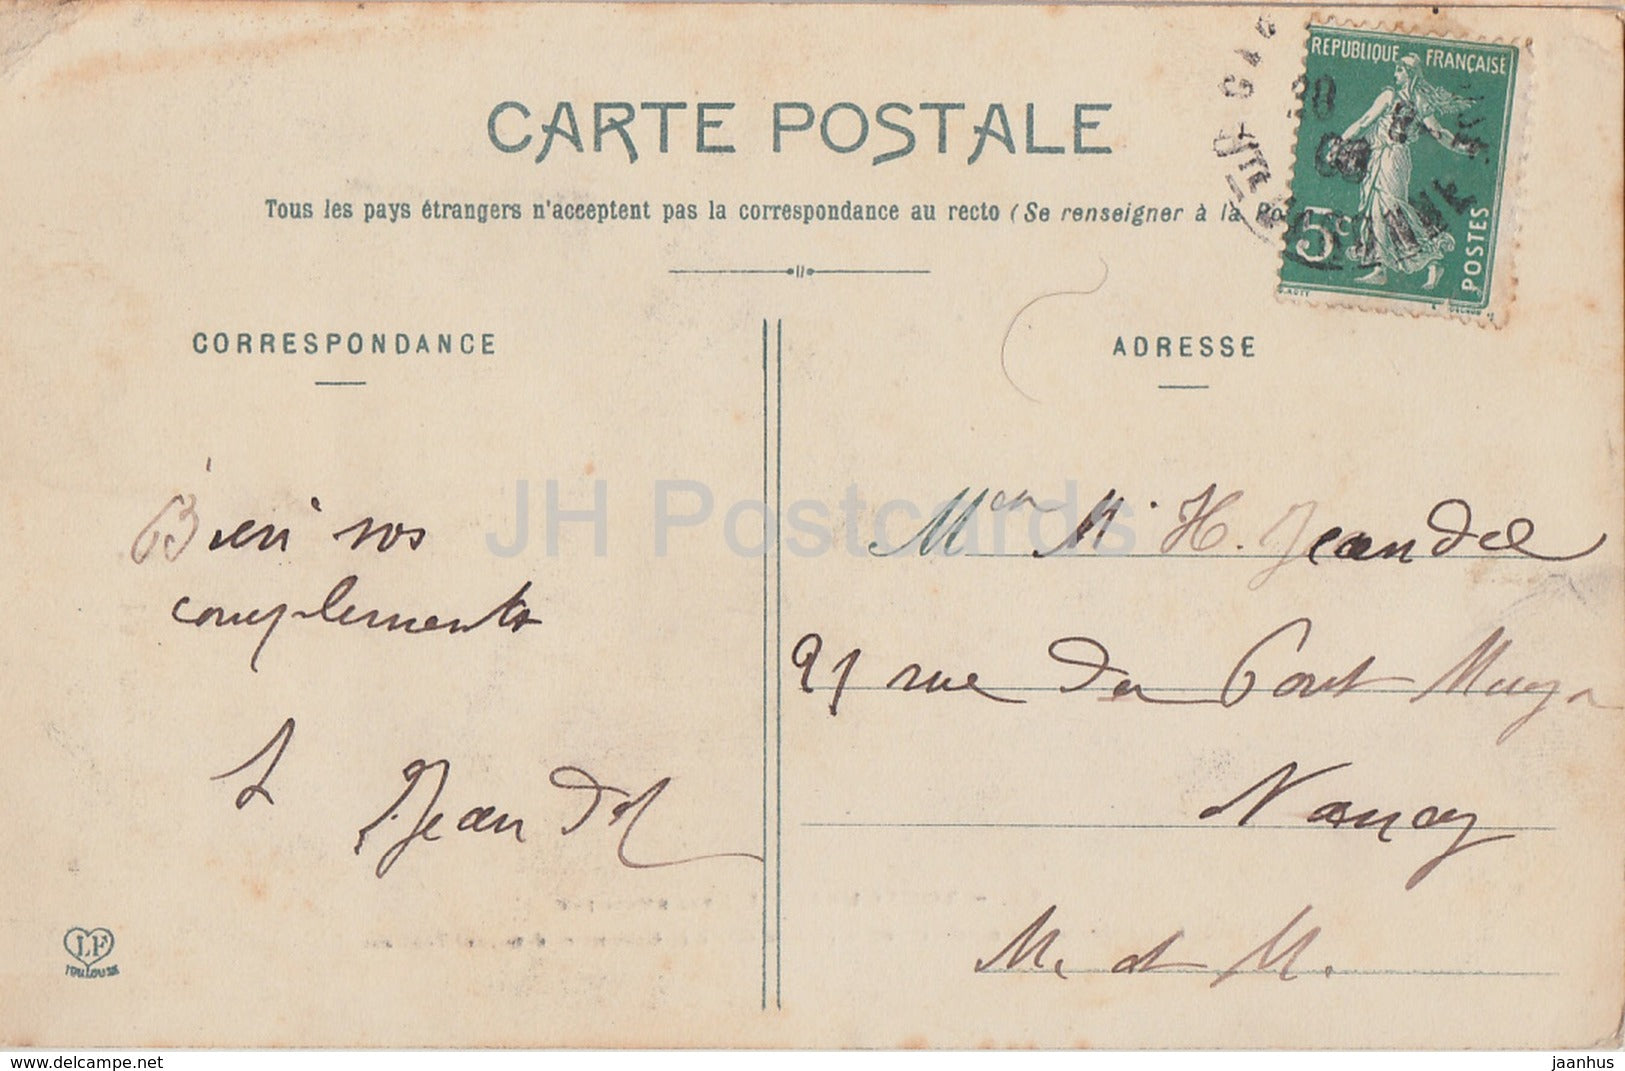 REPUBLIQUE FRANÇAISE
5c
POSTES
CARTE POSTALE
Tous les pays étrangers n'acceptent pas la correspondance au recto (Se renseigner à la
CORRESPONDANCE
ADRESSE
JH Postcards
Bien vos
complements
Jeandel
H. Jeandel
91 rue du Pont
Nancy
M. et M.
LF
TOULOUSE
www.delcampe.net
jaanhus